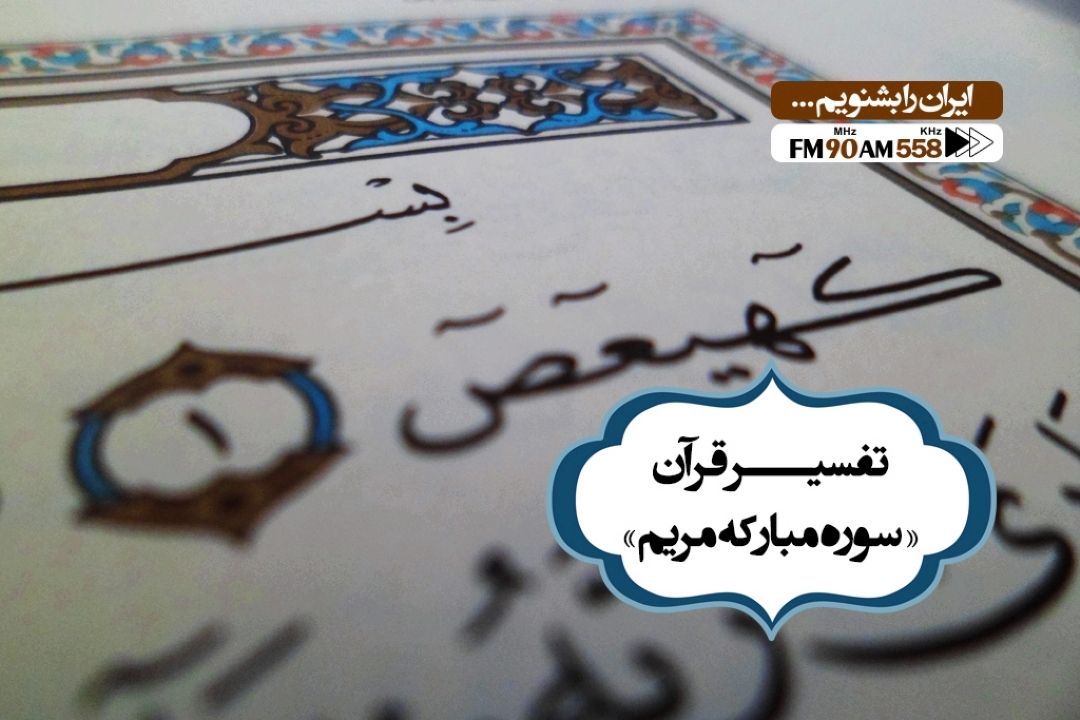 ایران را بشنویم ...
MHz KHz
FM 90 AM 558
بِسْـ
كهيعص
١
تفسیر قرآن
«سوره مبارکه مریم»